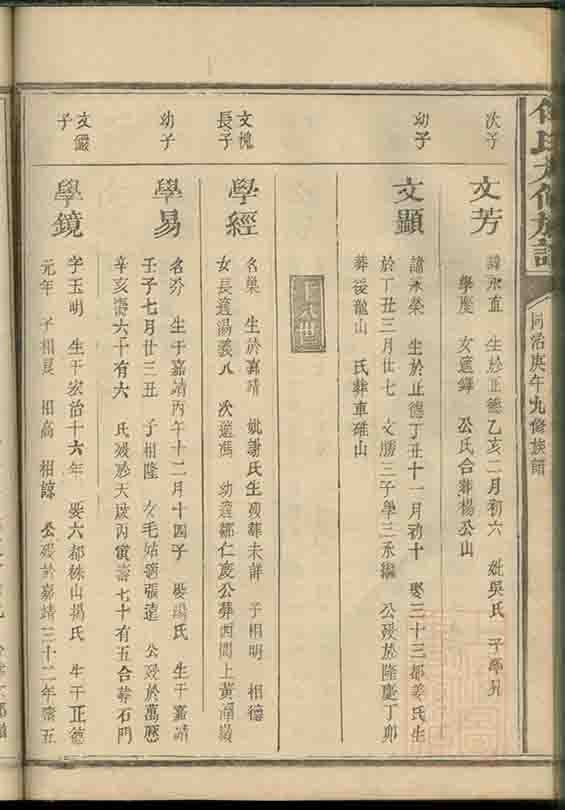 氏九修族譜
同治庚午九修族譜
次子
文芳
諱永直 生於正德乙亥二月初六 妣吳氏 子學
學慶 女適鐸 公氏合葬楊公山
幼子
文顯
諱永榮 生於正德丁丑十一月初十 娶三十三都姜氏生
於丁丑三月廿七 文勝三子學三永繼 公歿於隆慶丁卯
葬後龍山 氏葬車碓山
十八世
文槐
長子
學經
名巢 生於嘉靖 妣謝氏生歿葬未詳 子相明 相德
女長適湯義八 次適馮 幼適鄒仁慶公葬西間上黃
幼子
學易
名 生于嘉靖丙午十二月十四子 娶湯氏 生于嘉靖
壬子七月廿三丑 子相隆 女毛姑適張遠 公歿於萬曆
辛亥壽六十有六 氏歿於天啟丙寅壽七十有五合葬石門
文
子
學鏡
字玉明 生于弘治十六年 娶六都株山揭氏 生于正德
元年 子相 相高 相諒 公歿於嘉靖三十二年 五